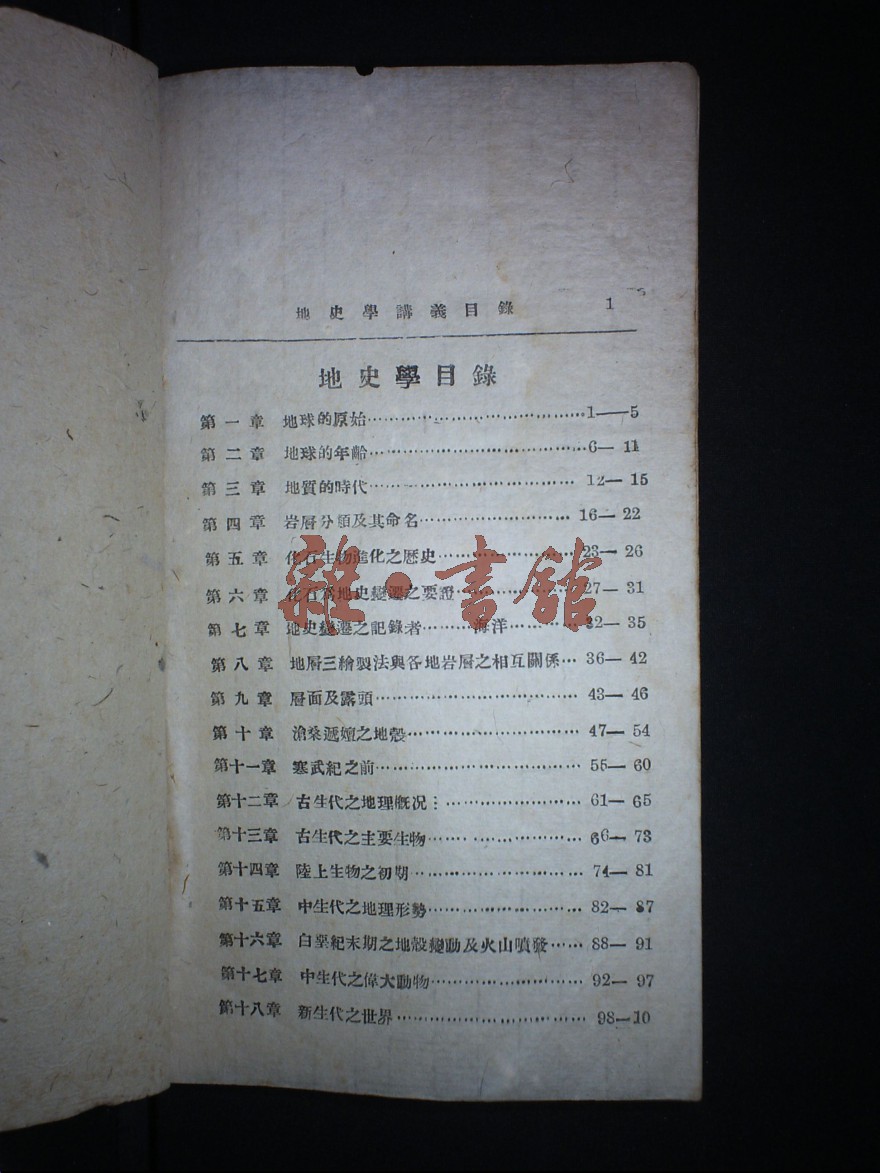 地史學講義目錄 1
地史學目錄
第一章 地球的原始……………………………1——5
第二章 地球的年齡……………………………6—11
第三章 地質的時代……………………………12—15
第四章 岩層分類及其命名……………………16—22
第五章 化石生物進化之歷史…………………23—26
第六章 化石爲地史變遷之要證………………27—31
第七章 地史變遷之記錄者………海洋…………32—35
第八章 地層三繪製法與各地岩層之相互關係…36—42
第九章 層面及露頭……………………………43—46
第十章 滄桑遞嬗之地殼………………………47—54
第十一章 寒武紀之前…………………………55—60
第十二章 古生代之地理概况…………………61—65
第十三章 古生代之主要生物…………………66—73
第十四章 陸上生物之初期……………………74—81
第十五章 中生代之地理形勢…………………82—87
第十六章 白堊紀末期之地殼變動及火山噴發……88—91
第十七章 中生代之偉大動物…………………92—97
第十八章 新生代之世界………………………98—10
雜·書館